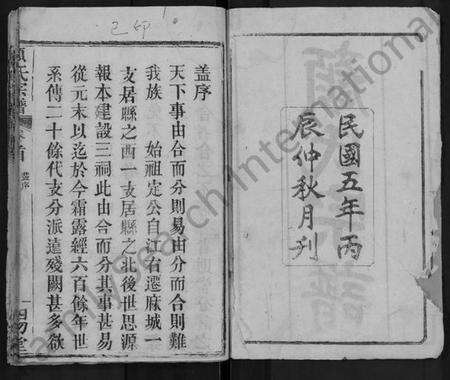 民國五年丙
辰仲秋月刊
盖序
天下事由合而分則易由分而合則難
我族 始祖定公自江省遷麻城一
支居縣之西一支居縣之北後世思源
報本建設三祠此由合而分其事甚易
從元末以迄於今霜露經六百餘年世
系傳二十餘代支分派遠殘闕甚多欲
氏宗譜 卷首 盖序
己印